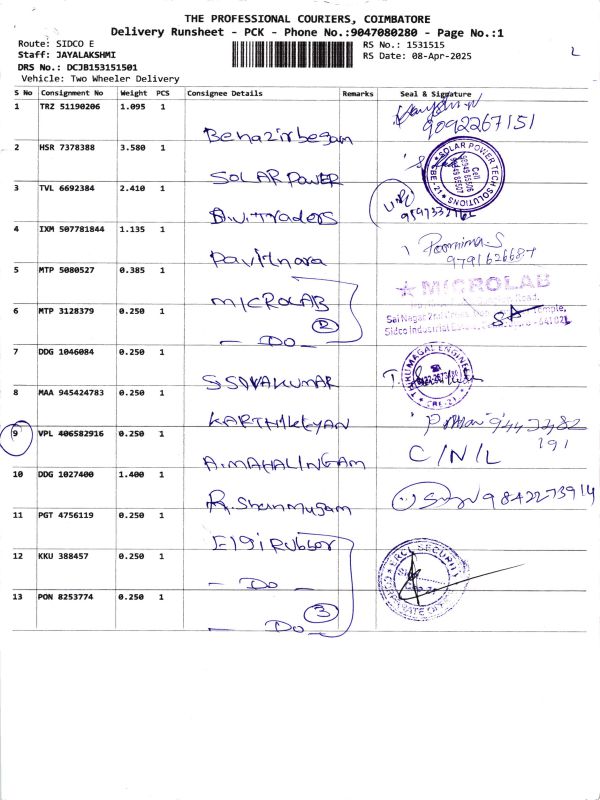 THE PROFESSIONAL COURIERS, COIMBATORE
Delivery Runsheet - PCK - Phone No.:9047080280 - Page No.:1
Route: SIDCO E
RS No.: 1531515
Staff: JAYALAKSHMI
RS Date: 08-Apr-2025
DRS No.: DCJB153151501
Vehicle: Two Wheeler Delivery
S No Consignment No Weight PCS Consignee Details Remarks Seal & Signature
1 TRZ 51190206 1.095 1
Benazirbegam 9092267151
2 HSR 7378388 3.580 1
SOLAR POWER
SOLAR POWER TECH SOLUTIONS
CBE-21
Cell
3 TVL 6692384 2.410 1
B.V.Traders
4 IXM 507781844 1.135 1
Pavithara
Poornima.S
9791626687
5 MTP 5080527 0.385 1
MICROLAB
MICROLAB
6 MTP 3128379 0.250 1
Do 2
7 DDG 1046084 0.250 1
S.SIVAKUMAR
8 MAA 945424783 0.250 1
KARTHIKEYAN
9 VPL 406582916 0.250 1
A.MAHALINGAM C/N/L
10 DDG 1027400 1.400 1
R.Shanmugam 9842273914
11 PGT 4756119 0.250 1
Elgi Rubber
12 KKU 388457 0.250 1
Do
13 PON 8253774 0.250 1
Do 3